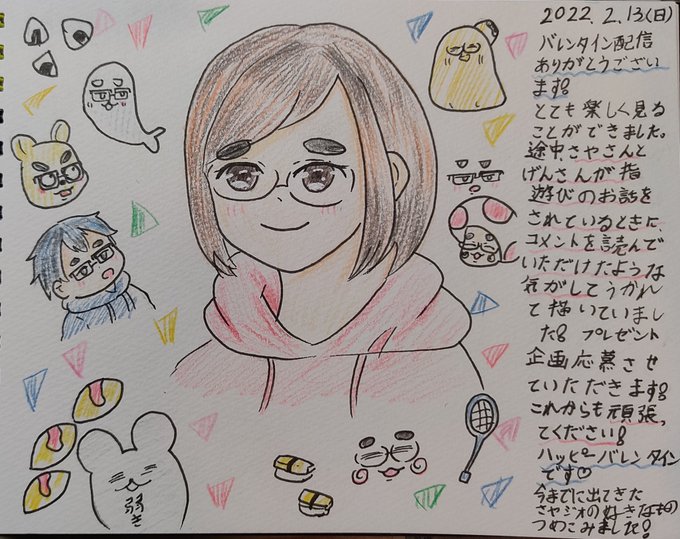 2022.2.13.(日)
バレンタイン配信
ありがとうござい
ます!
とても楽しく見る
ことができました。
途中、さやさんと
げんさんが指
遊びのお話を
されているときに、
コメントを読んで
いただけたような
気がしてうかれ
て描いていまし
た! プレゼント
企画応募させ
ていただきます!
これからも頑張っ
てください!
ハッピーバレンタイン
です♡
今までに出てきた
さやジオの好きなもの
つめこみました!
弱き